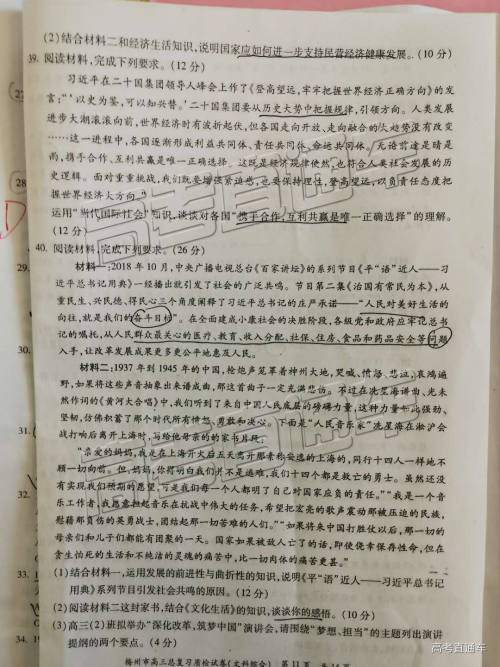 (2)结合材料二和经济生活知识,说明国家应如何进一步支持民营经济健康发展。(10分)
39. 阅读材料,完成下列要求。(12分)
习近平在二十国集团领导人峰会上作了《登高望远,牢牢把握世界经济正确方向》的发
言:“‘以史为鉴,可以知兴替。’二十国集团要从历史大势中把握规律,引领方向。人类发展
进步大潮滚滚向前,世界经济时有波折起伏,但各国走向开放、走向融合的大趋势没有改变
……这一进程中,各国逐渐形成利益共同体、责任共同体、命运共同体。无论前途是晴是
雨,携手合作、互利共赢是唯一正确选择。这既是经济规律使然,也符合人类社会发展的历
史逻辑。面对重重挑战,我们既要增强紧迫感,也要保持理性,登高望远,以负责任态度把
握世界经济大方向。”
运用“当代国际社会”知识,谈谈对各国“携手合作,互利共赢是唯一正确选择”的理解。
(12分)
40. 阅读材料,完成下列要求。(26分)
材料一:2018年10月,中央广播电视总台《百家讲坛》的系列节目《平“语”近人——习
近平总书记用典》一经播出就引发了社会的广泛共鸣。节目第二集《治国有常民为本》,从
重民生、兴民德、得民心三个角度阐释了习近平总书记的庄严承诺——“人民对美好生活的
向往,就是我们的奋斗目标”。在全面建成小康社会的决胜阶段,各级党和政府应牢记总书
记的嘱托,从人民群众最关心的医疗、教育、收入分配、社保、住房、食品和药品安全等问题
入手,让改革发展成果更多更公平地惠及人民。
材料二:1937年到1945年的中国,枪炮声笼罩着神州大地,哭喊、愤怒、悲泣、哀鸿遍
野,如果将这些声音抽象出来谱成曲,那这首曲子一定充满悲伤。不过在冼星海谱曲、光未
然作词的《黄河大合唱》中,我们听到了来自中国人民底层的磅礴力量,这种力量如此强劲、
坚韧,仿佛积蓄了那个时代所有愤怒、勇敢和决心。下面是“人民音乐家”冼星海在淞沪会
战打响后离开上海时,写给他母亲的的家书片段:
“亲爱的妈妈,我是在上海开火后五天离开那素称安逸的上海的,同行十四人一样地不
顾一切向前。但,妈妈,你得明白我们并不是逃难,我们十四个都是救亡的勇士。虽然还没
有实现我们预期的愿望,可是我们每一个人都明了自己对国家应负的责任。”“我是一个音
乐工作者,我愿意担起音乐在抗战中伟大的任务,希望把宏亮的歌声震动那被压迫的民族,
慰藉那负伤的英勇战士,团结起那一切苦难的人们。”“如果将来中国打胜仗以后,那一切的
母亲们和儿子们都能有团聚的一天。国家如果被敌人亡了的话,即使侥幸保存性命,但在
贪生怕死的生活和不纯洁的灵魂的痛苦中,比一切肉体的痛苦更甚。”
(1)结合材料一,运用发展的前进性与曲折性的知识,说明《平“语”近人——习近平总书记
用典》系列节目引发社会共鸣的原因。(12分)
(2)阅读材料二这封家书,结合《文化生活》的知识,谈谈你的感悟。(10分)
(3)高三(2)班拟举办“深化改革,筑梦中国”演讲会,请围绕“梦想、担当”的主题列出演讲
提纲的两个要点。(4分)
梅州市高三总复习质检试卷(文科综合) 第11页 共14页
29.
30.
31.
32.
33.
34.
高考直通车